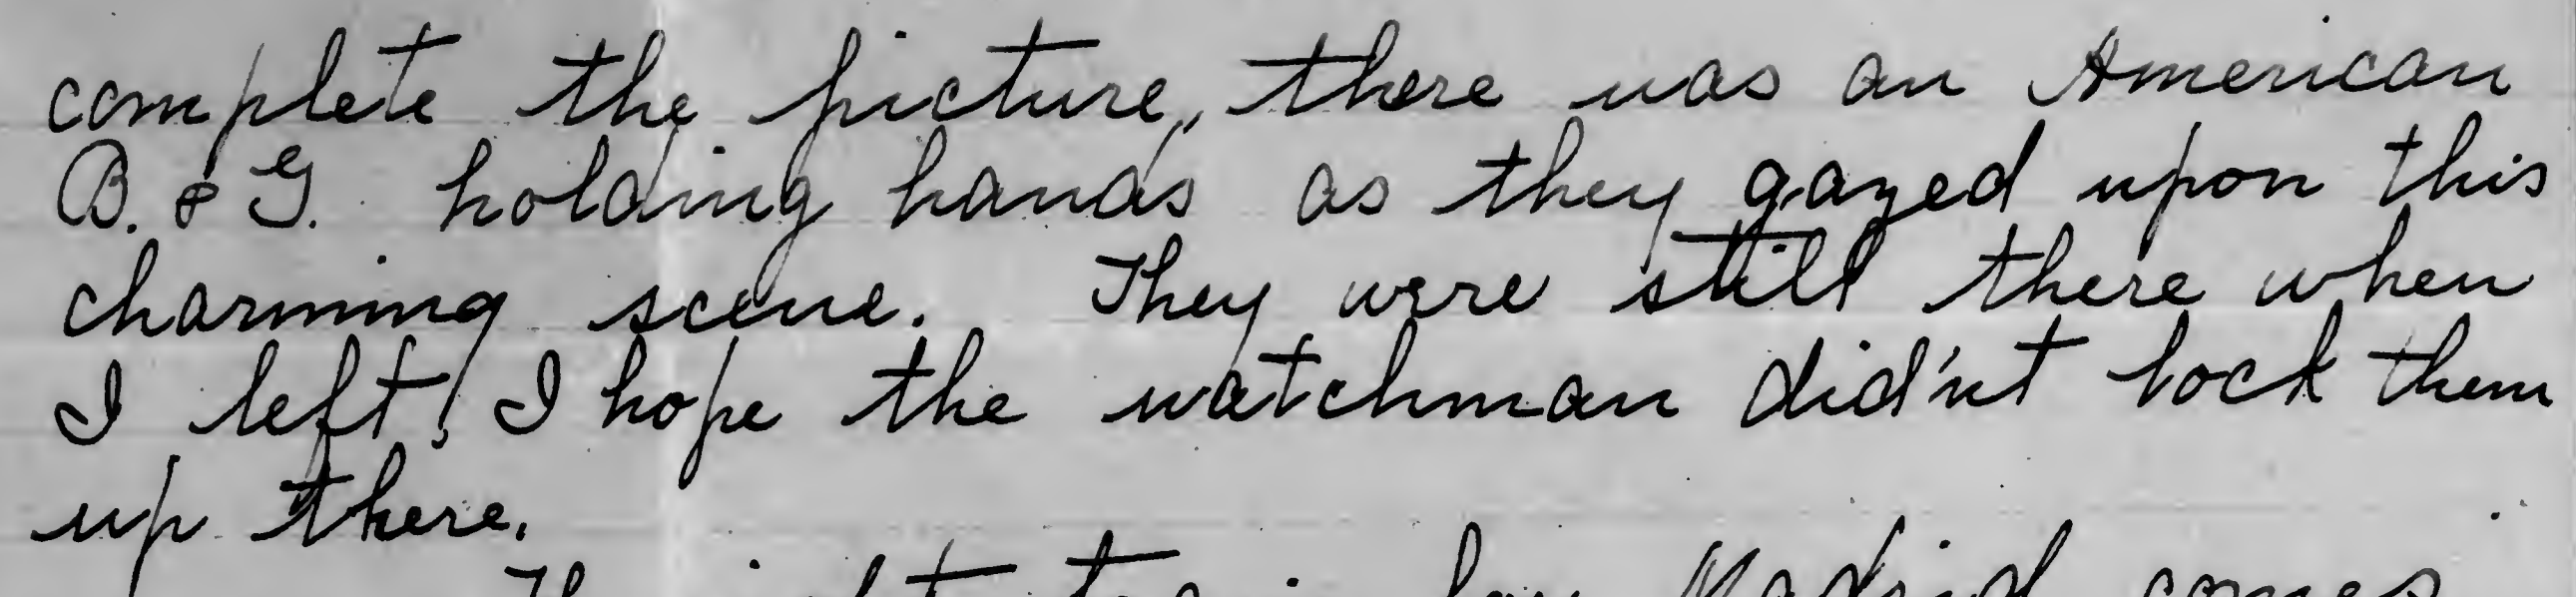 complete the picture, there was an American
B. & G. holding hands as they gazed upon this
charming scene. They were still there when
I left, I hope the watchman did'nt lock them
up there.
The night train for Madrid comes